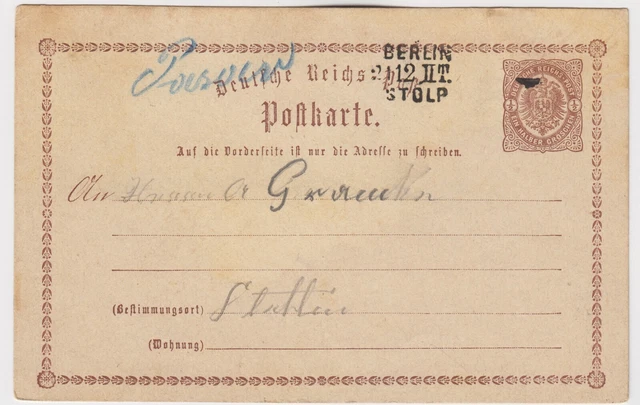 Pasewalk
BERLIN
21 12 II T.
STOLP
Deutsche Reichs-Post
Postkarte.
Auf die Vorderseite ist nur die Adresse zu schreiben.
An Herrn A Gramtke
(Bestimmungsort) Stettin
(Wohnung)
DEUTSCHE REICHS-POST
1/2 1/2
EIN HALBER GROSCHEN